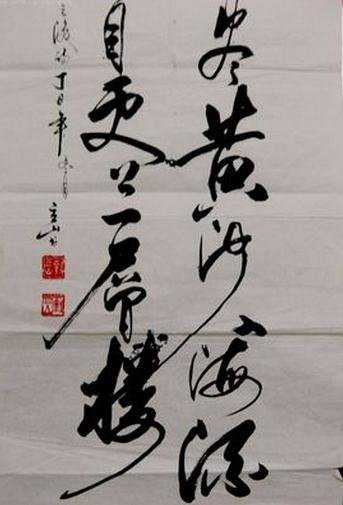 尽黄河入海流
目更上一層樓
之渙诗丁巳年